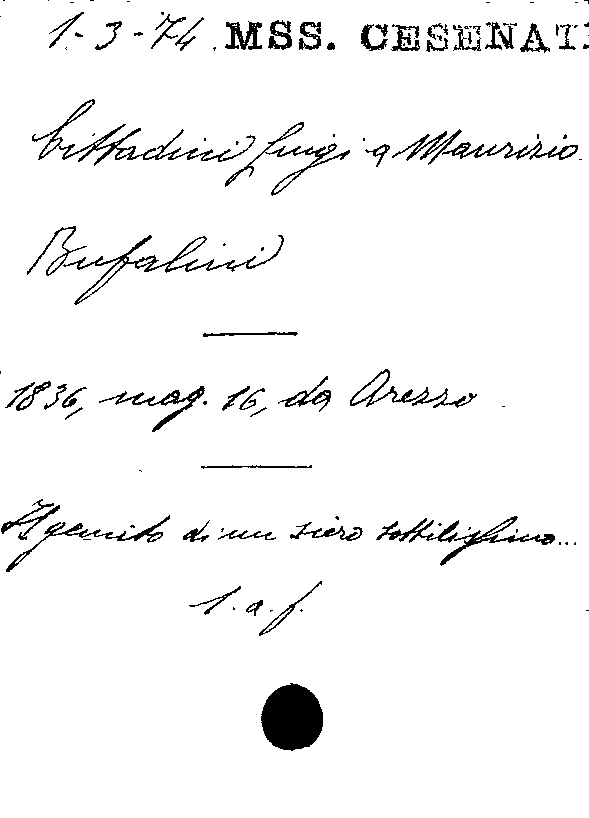 1-3-74 MSS. CESENATI
Cittadini Luigi a Maurizio
Bufalini
1836, mag. 16, da Arezzo
Il gemito di un siero sottilissimo...
l. a. f.